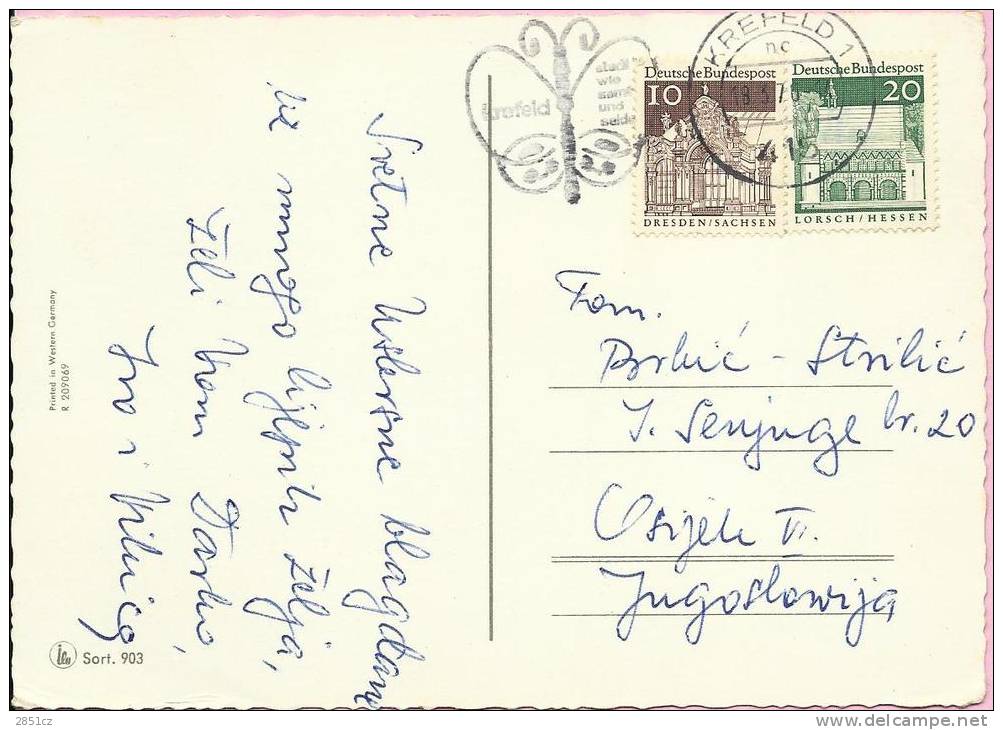 Sretne Uskrsne blagdane
uz mnogo lijepih želja,
želi Vam Darko,
Ivo i Milica
Printed in Western Germany
R 209069
Sort. 903
krefeld
stadt
wie
samt
und
seide
KREFELD 1
415
Deutsche Bundespost
10
DRESDEN/SACHSEN
Deutsche Bundespost
20
LORSCH/HESSEN
Fam.
Brkić - Strilić
I. Senjuge br. 20
Osijek II.
Jugoslawija
2851cz
www.delcampe.net